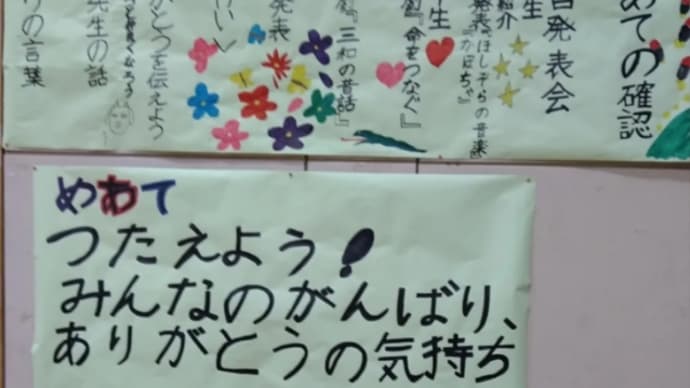 めあての確認
発表会
紹介
発表『ほしぞらの音楽』
『かぼちゃ』
『命をつなぐ』
『三和の昔話』
発表
がとうを伝えよう
先生の話
りの言葉
めあて
つたえよう!
みんなのがんばり、
ありがとうの気持ち